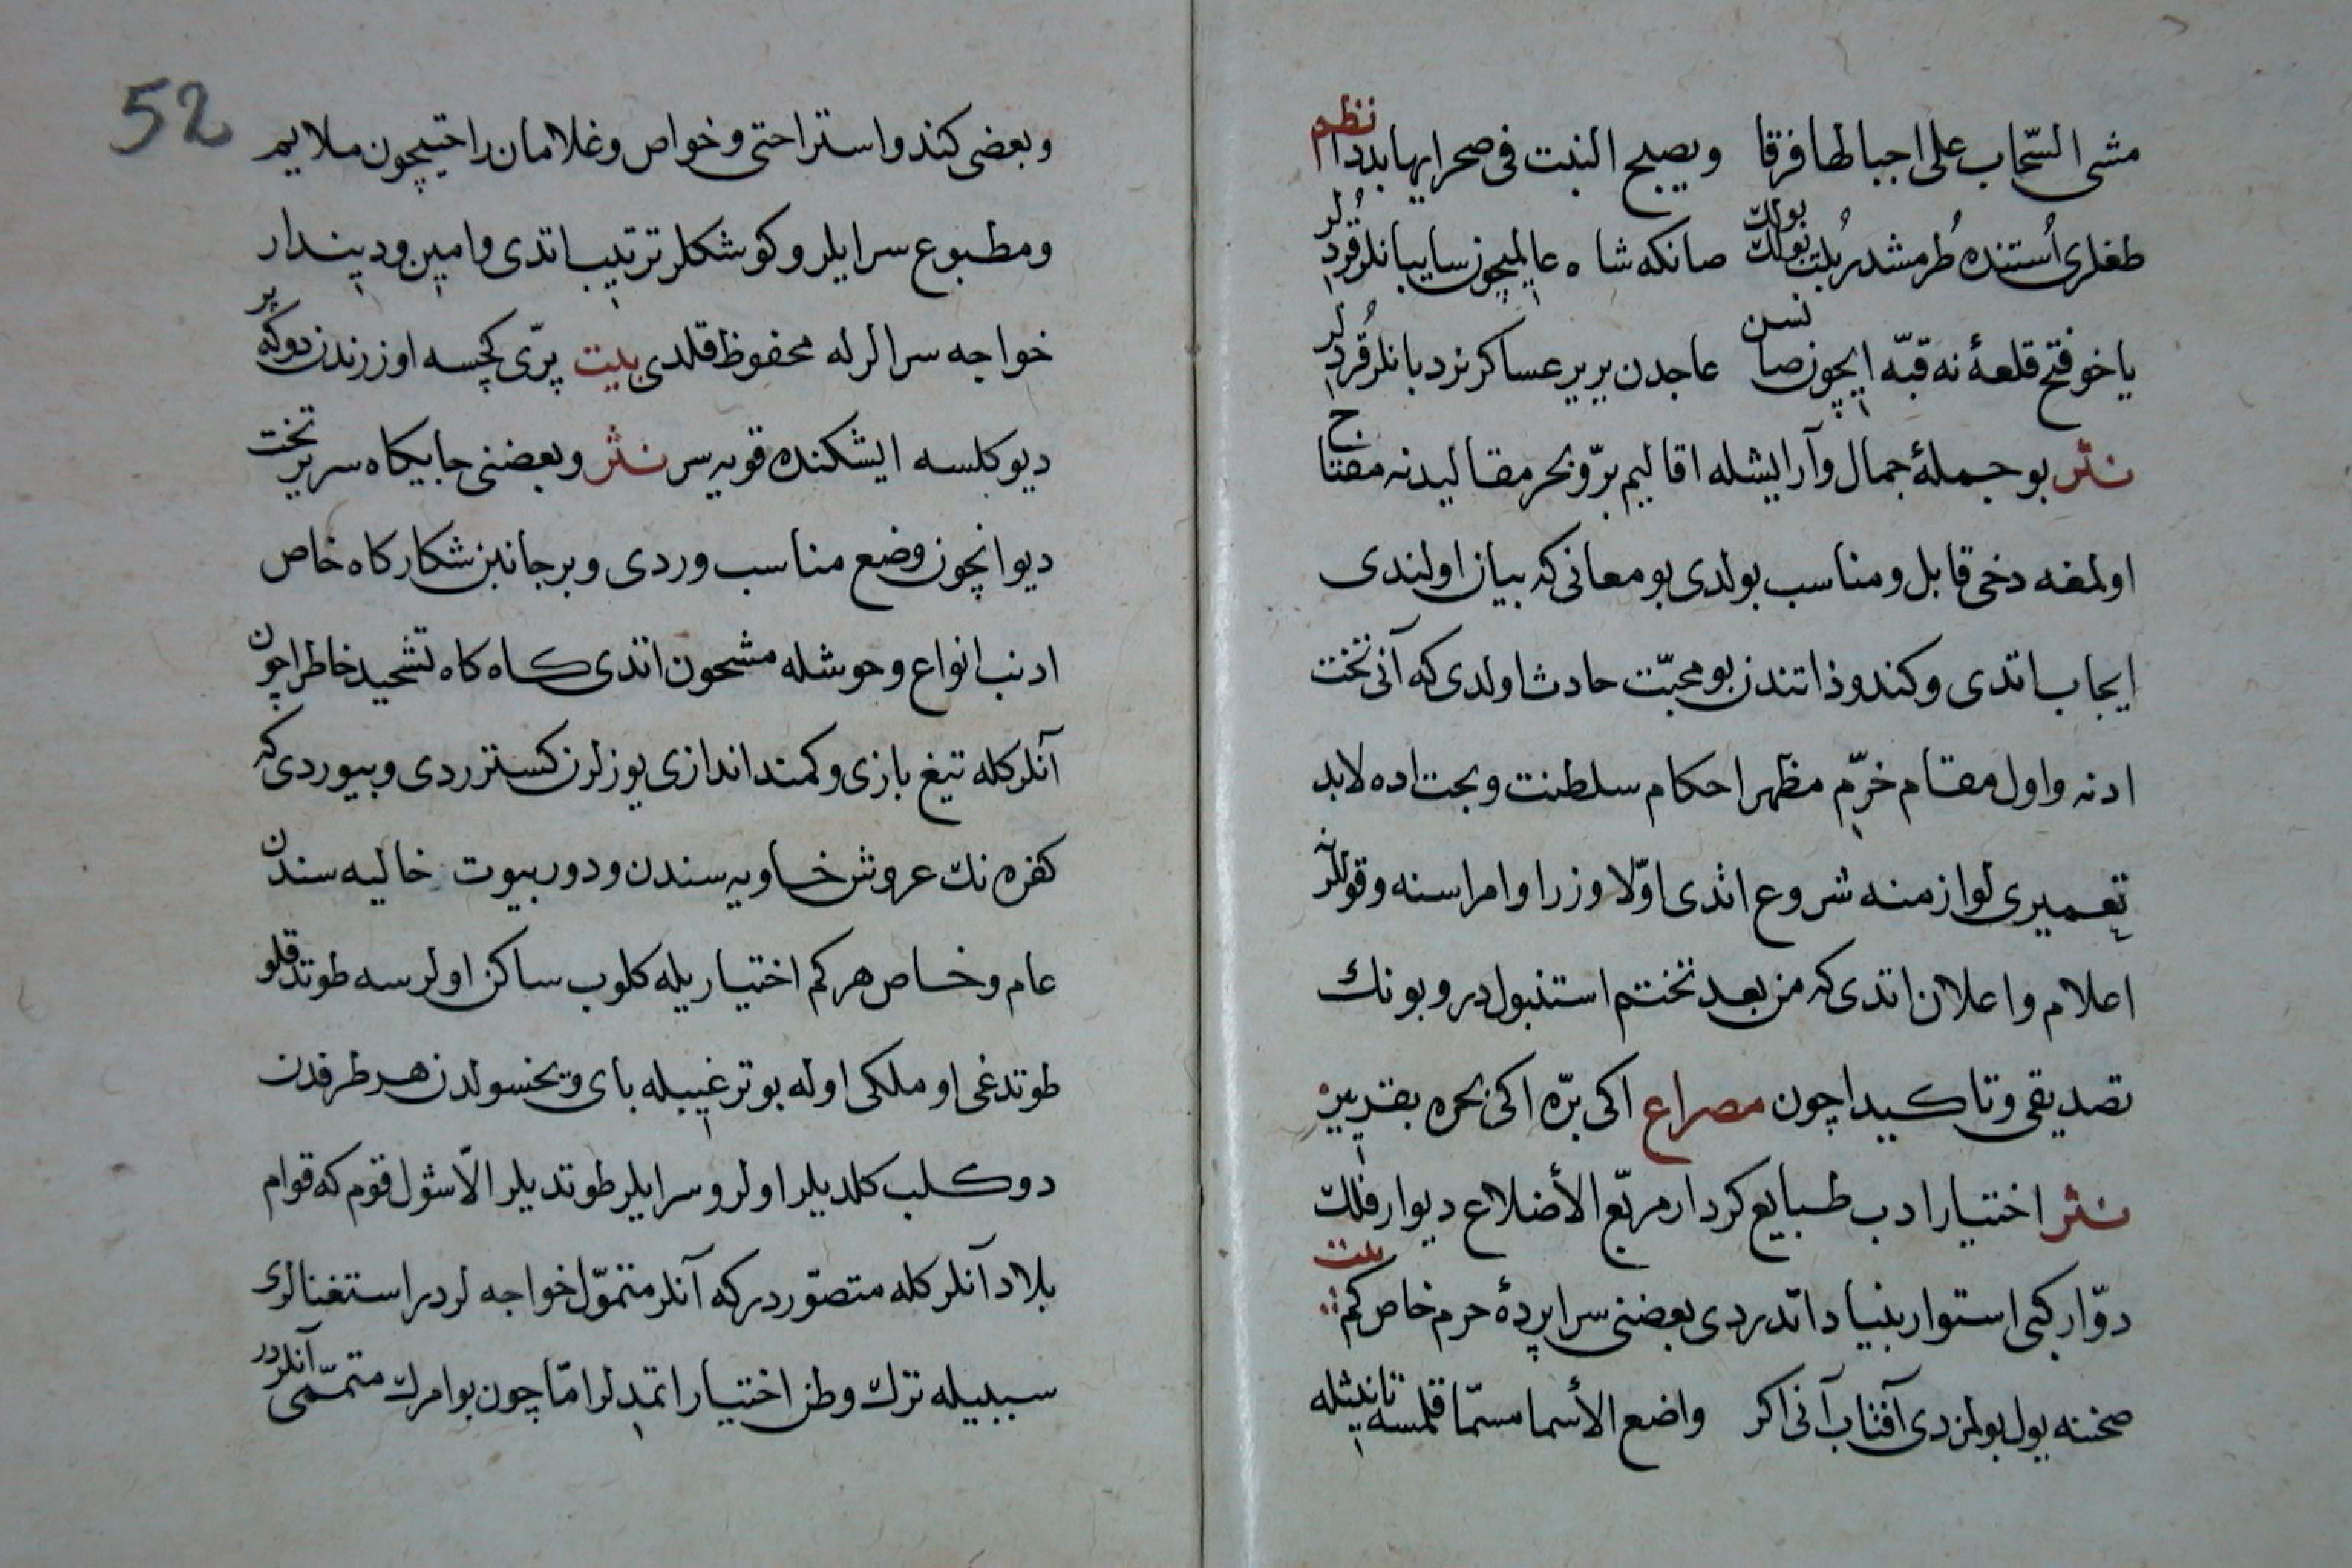 مشى السّحاب على اجبالها فرقا ويصبح النبت فى صحرايها بددا نظم
طغلرى اُستنده طُرمشدر بُلت بولك بولك صانكه شاه عالمچون سايبانلر قُردلر
ياخو فتح قلعهٔ نه قبّه ايچون صانسن عاجدن بر بر عساكر نردبانلر قُردلر
نثر بو جملهٔ جمال وآرايشله اقاليم برّ وبحر مقاليدنه مفتاح
اولمغه دخى قابل ومناسب بولدى بو معانى كه بيان اولندى
ايجاب اتدى وكندو ذاتندن بو محبّت حادث اولدى كه آنى تخت
ادنه واول مقام خرّم مظهر احكام سلطنت وبخت اده لابد
تعميرى لوازمنه شروع اتدى اوّلا وزرا وامراسنه وقوللرنه
اعلام واعلان اتدى كه من بعد تختم استنبولدر وبونك
تصديقى وتاكيد اچون مصراع اكى برّه اكى بحره
نثر اختيار ادب طبايع كردار مربّع الأضلاع ديوار فلك
دوّار كبى استوار بنياد اتدردى بعضنى سراپردهٔ حرم خاص كم بيت
صحننه يول بولمزدى آفتاب آنى اكر واضع الأسما مسمّا قلمسه تانيثله
وبعضى كندو استراحتى وخواص وغلامان راحتيچون ملايم
ومطبوع سرايلر وكوشكلر ترتيب اتدى وامين وديندار
خواجه سرالرله محفوظ قلدى بيت پرّى كچسه اوزرندن دوكه پر
ديو كلسه ايشكنده قويه سر نثر وبعضنى جايكاه سرير تخت
ديوانچون وضع مناسب وردى وبر جانبن شكاركاه خاص
ادنب انواع وحوشله مشحون اتدى كاه كاه تشحيد خاطر اچون
آنلركله تيغ بازى وكمند اندازى يوزلرن كستررردى وبيوردى كه
كفره نك عروش خاويه سندن ودور بيوت خاليه سندن
عام وخاص هر كم اختياريله كلوب ساكن اولرسه طوتدقلو
طوتدغى او ملكى اوله بو ترغيبيله باى ويخسولدن هر طرفدن
دوكلب كلديلر اولر وسرايلر طوتديلر الّا شول قوم كه قوام
بلاد آنلركله متصوّردر كه آنلر متموّل خواجه لردر استغنالرى
سببيله ترك وطن اختيار اتمدلر امّا چون بو امرك متمّمى آنلردر
52